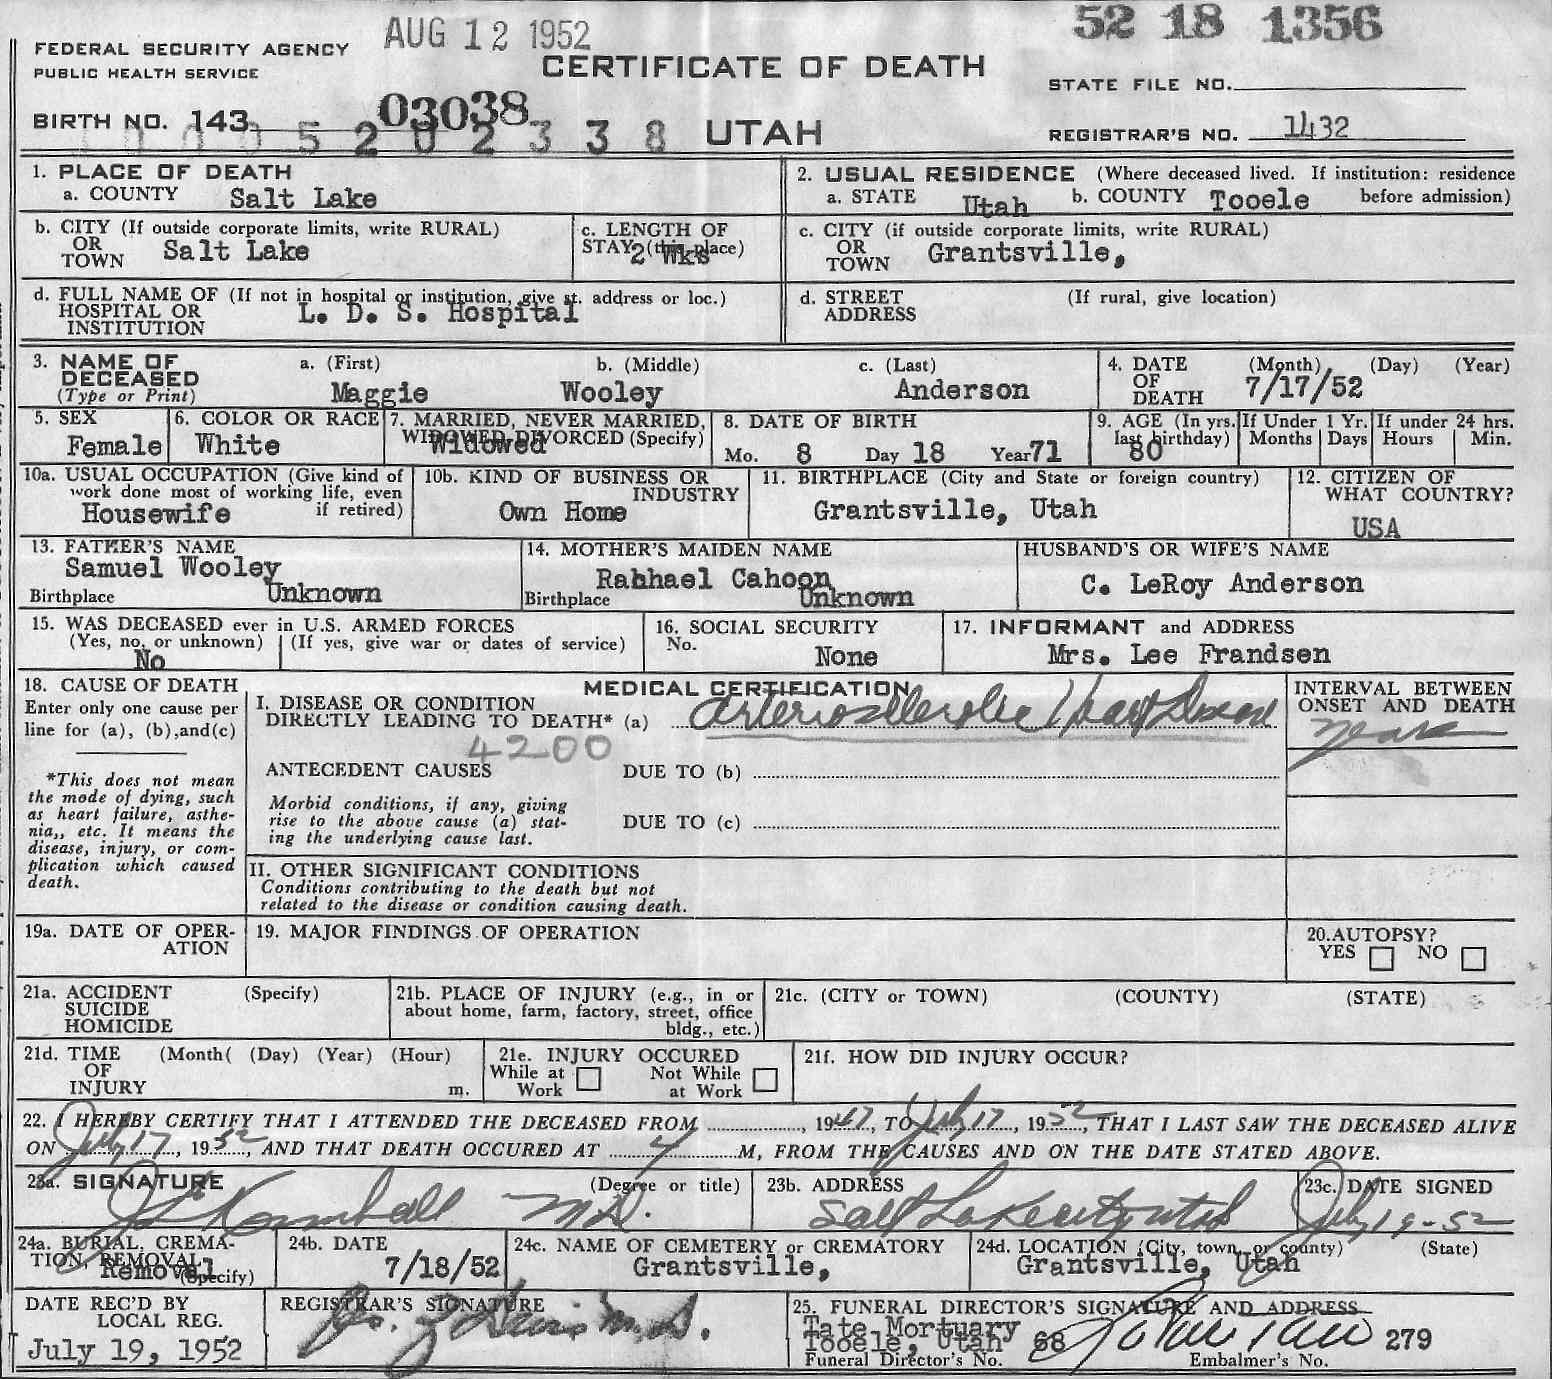 AUG 12 1952
52 18 1356
FEDERAL SECURITY AGENCY
PUBLIC HEALTH SERVICE
CERTIFICATE OF DEATH
STATE FILE NO.
BIRTH NO. 143 03038
5 2 0 2 3 3 8
UTAH
REGISTRAR'S NO. 1432
1. PLACE OF DEATH
a. COUNTY Salt Lake
2. USUAL RESIDENCE (Where deceased lived. If institution: residence
a. STATE Utah b. COUNTY Tooele before admission)
b. CITY (If outside corporate limits, write RURAL)
OR
TOWN Salt Lake
c. LENGTH OF
STAY (this place) 2 Wks
c. CITY (if outside corporate limits, write RURAL)
OR
TOWN Grantsville,
d. FULL NAME OF (If not in hospital or institution, give st. address or loc.)
HOSPITAL OR
INSTITUTION
L. D. S. Hospital
d. STREET (If rural, give location)
ADDRESS
3. NAME OF
DECEASED
(Type or Print)
a. (First) b. (Middle) c. (Last)
Maggie Wooley Anderson
4. DATE (Month) (Day) (Year)
OF
DEATH 7/17/52
5. SEX
Female
6. COLOR OR RACE
White
7. MARRIED, NEVER MARRIED,
WIDOWED, DIVORCED (Specify)
Widowed
8. DATE OF BIRTH
Mo. 8 Day 18 Year 71
9. AGE (In yrs.
last birthday)
80
If Under 1 Yr.
Months Days
If under 24 hrs.
Hours Min.
10a. USUAL OCCUPATION (Give kind of
work done most of working life, even
if retired)
Housewife
10b. KIND OF BUSINESS OR
INDUSTRY
Own Home
11. BIRTHPLACE (City and State or foreign country)
Grantsville, Utah
12. CITIZEN OF
WHAT COUNTRY?
USA
13. FATHER'S NAME
Samuel Wooley
Birthplace Unknown
14. MOTHER'S MAIDEN NAME
Rahhael Cahoon
Birthplace Unknown
HUSBAND'S OR WIFE'S NAME
C. LeRoy Anderson
15. WAS DECEASED ever in U.S. ARMED FORCES
(Yes, no, or unknown) (If yes, give war or dates of service)
No
16. SOCIAL SECURITY
No.
None
17. INFORMANT and ADDRESS
Mrs. Lee Frandsen
18. CAUSE OF DEATH
Enter only one cause per
line for (a), (b),and(c)
*This does not mean
the mode of dying, such
as heart failure, asthe-
nia,, etc. It means the
disease, injury, or com-
plication which caused
death.
MEDICAL CERTIFICATION
I. DISEASE OR CONDITION
DIRECTLY LEADING TO DEATH* (a) Arteriosclerotic Heart Disease
4200
ANTECEDENT CAUSES DUE TO (b)
Morbid conditions, if any, giving
rise to the above cause (a) stat-
ing the underlying cause last.
DUE TO (c)
INTERVAL BETWEEN
ONSET AND DEATH
years
II. OTHER SIGNIFICANT CONDITIONS
Conditions contributing to the death but not
related to the disease or condition causing death.
19a. DATE OF OPER-
ATION
19. MAJOR FINDINGS OF OPERATION
20.AUTOPSY?
YES NO
21a. ACCIDENT (Specify)
SUICIDE
HOMICIDE
21b. PLACE OF INJURY (e.g., in or
about home, farm, factory, street, office
bldg., etc.)
21c. (CITY or TOWN) (COUNTY) (STATE)
21d. TIME (Month( (Day) (Year) (Hour)
OF
INJURY m.
21e. INJURY OCCURED
While at Not While
Work at Work
21f. HOW DID INJURY OCCUR?
22. I HEREBY CERTIFY THAT I ATTENDED THE DECEASED FROM , 1947, TO July 17, 1952, THAT I LAST SAW THE DECEASED ALIVE
ON July 17, 1952, AND THAT DEATH OCCURED AT 4 M, FROM THE CAUSES AND ON THE DATE STATED ABOVE.
23a. SIGNATURE (Degree or title)
Kimball M.D.
23b. ADDRESS
Salt Lake City Utah
23c. DATE SIGNED
July 19-52
24a. BURIAL, CREMA-
TION, REMOVAL
(Specify)
Removal
24b. DATE
7/18/52
24c. NAME OF CEMETERY or CREMATORY
Grantsville,
24d. LOCATION (City, town, or county) (State)
Grantsville, Utah
DATE REC'D BY
LOCAL REG.
July 19, 1952
REGISTRAR'S SIGNATURE
M.D.
25. FUNERAL DIRECTOR'S SIGNATURE AND ADDRESS
Tate Mortuary
Tooele, Utah 68 279
Funeral Director's No. Embalmer's No.